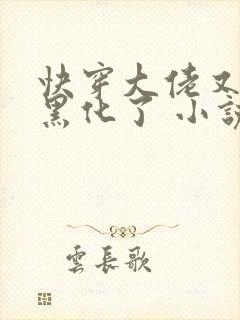 快穿大佬又
黑化了 小説
雲長歌